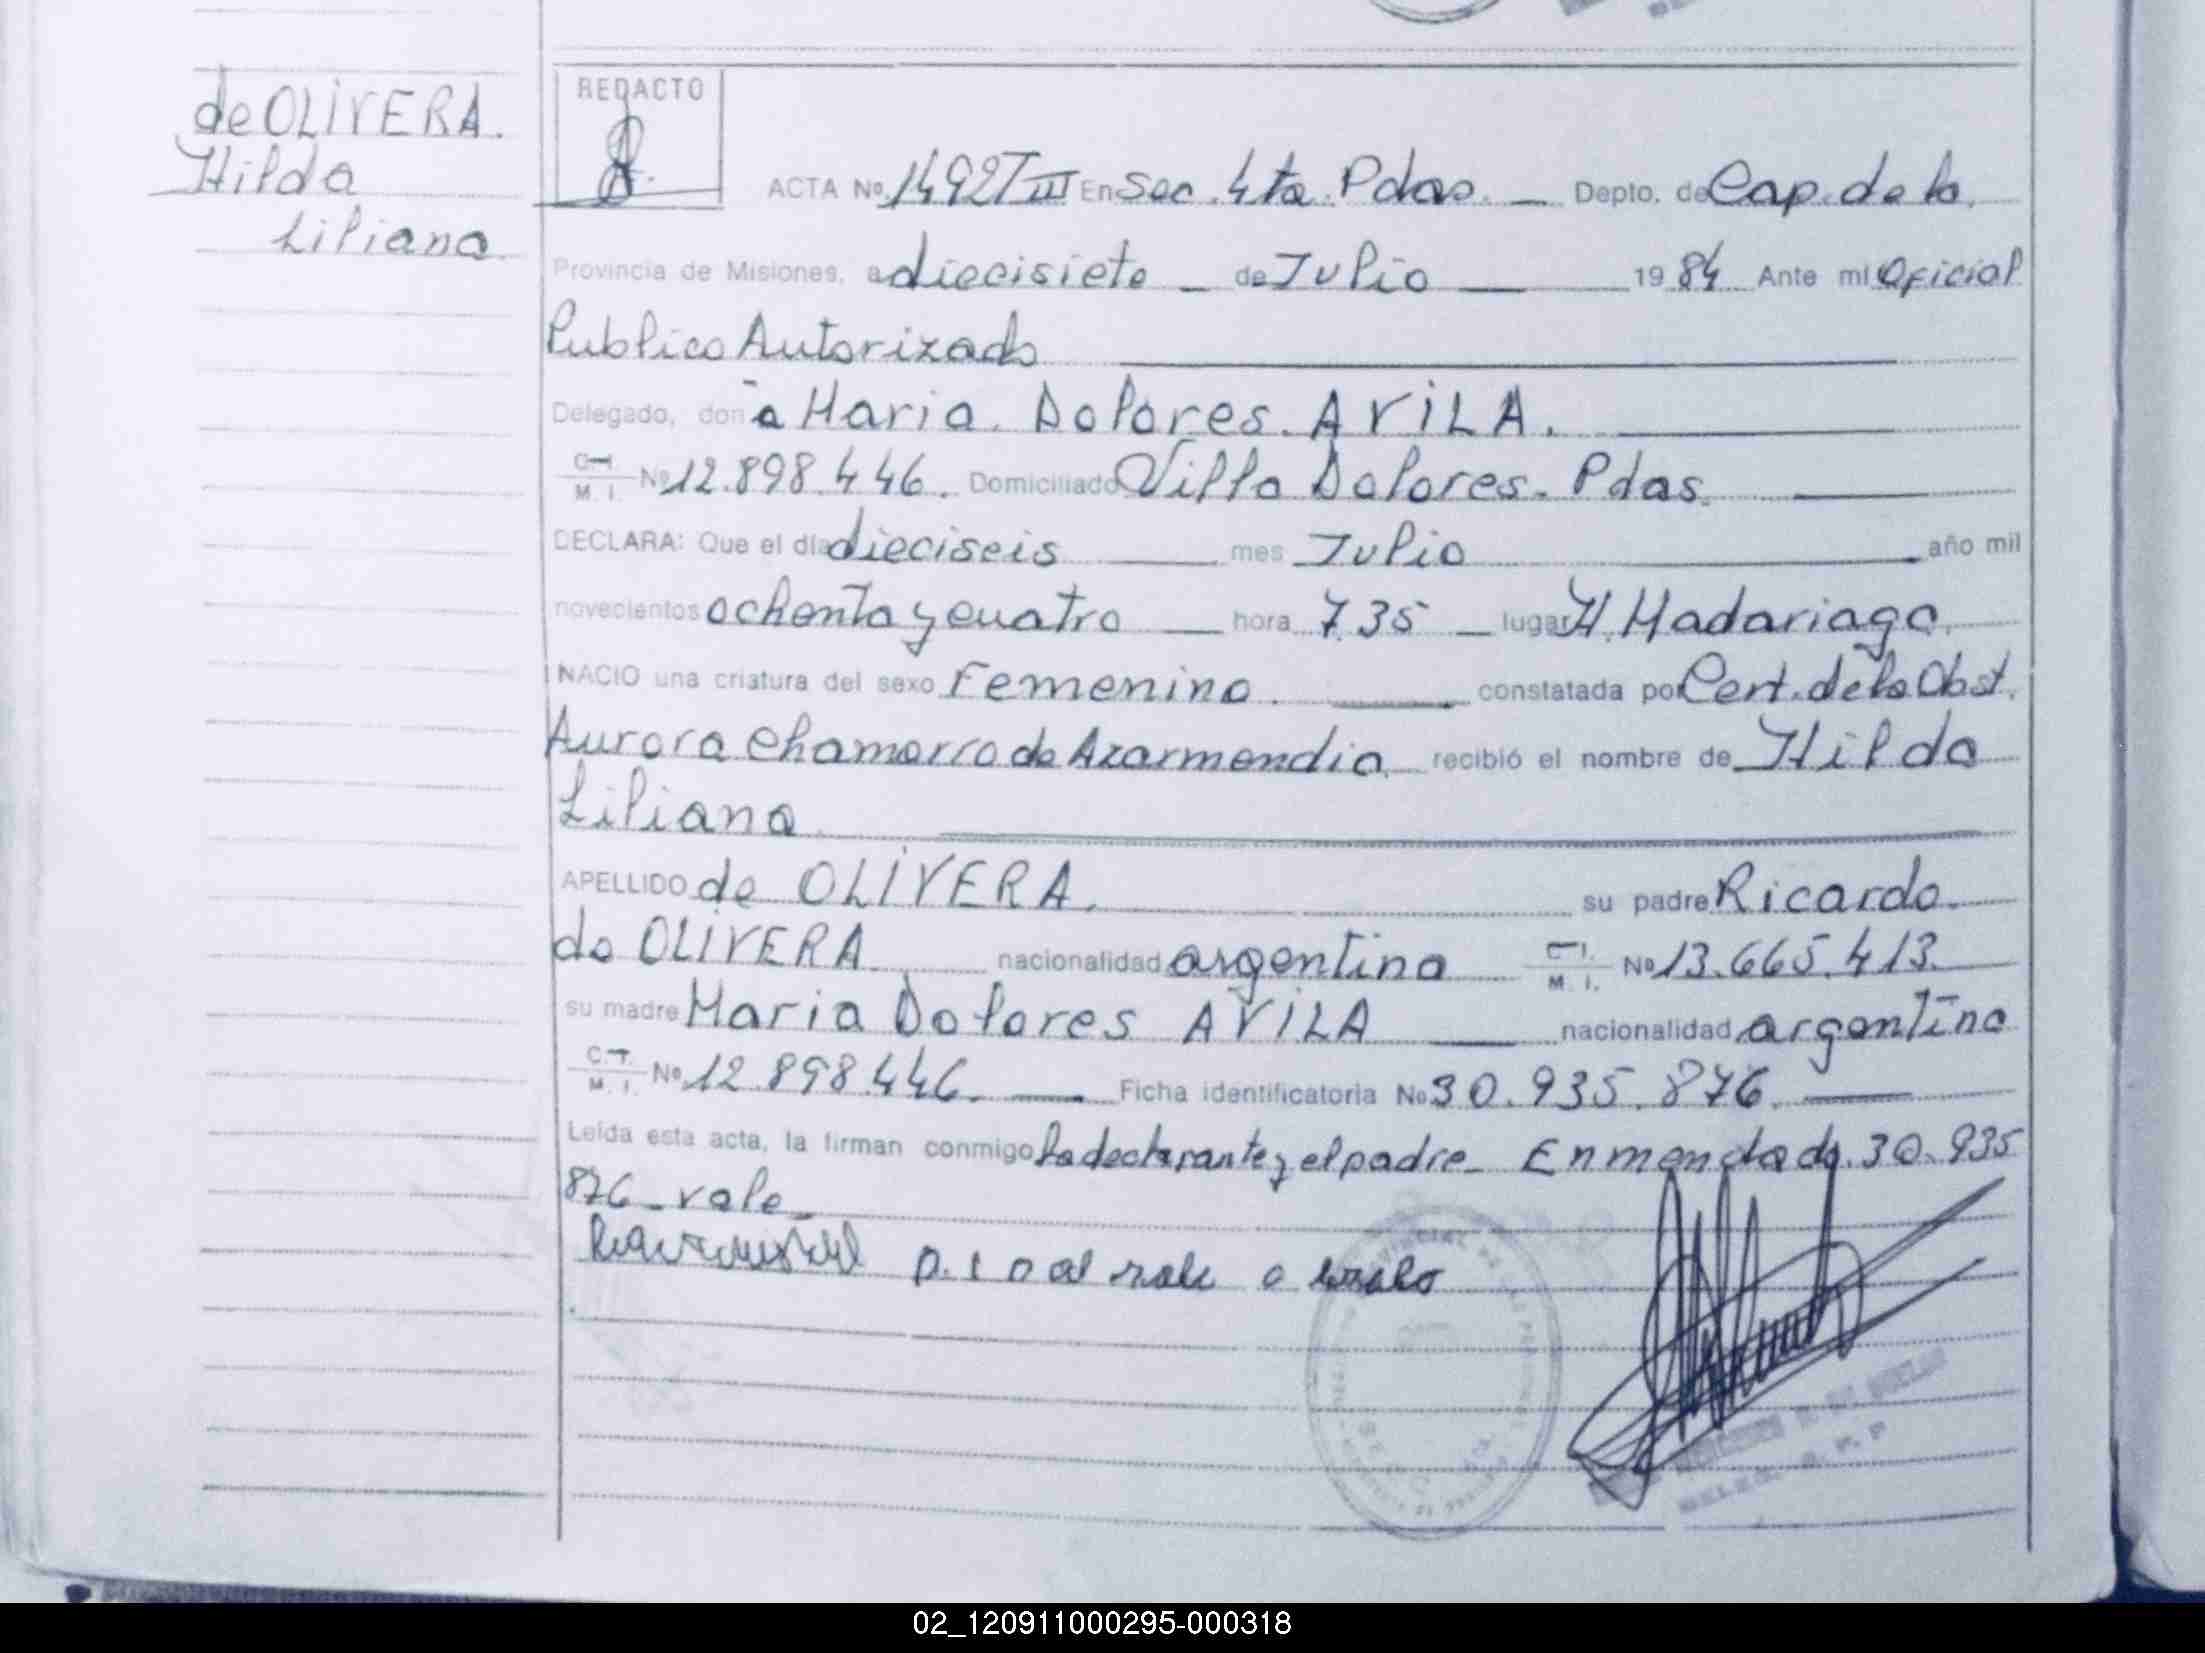 de OLIVERA.
Hilda
Liliana
REDACTO
ACTA Nº 1492 T III En Sec. 4ta. Pdas. Depto. de Cap. de la
Provincia de Misiones, a diecisiete de Julio 1984 Ante mí Oficial
Publico Autorizado
Delegado, doña Maria Dolores AVILA.
C.I.
M. I. Nº 12.898.446. Domiciliado Villa Dolores. Pdas.
DECLARA: Que el día dieciseis mes Julio año mil
novecientos ochenta y cuatro hora 7.35 lugar H. Madariaga
NACIO una criatura del sexo Femenino constatada por Cert. de la Obst.
Aurora Chamorro de Azarmendia recibió el nombre de Hilda
Liliana
APELLIDO de OLIVERA. su padre Ricardo
de OLIVERA nacionalidad argentina C.I. M. I. Nº 13.665.413.
su madre Maria Dolores AVILA nacionalidad argentina
C.I. M. I. Nº 12.898.446. Ficha identificatoria Nº 30.935.876.
Leída esta acta, la firman conmigo la declarante y el padre Enmendado. 30.935
876 - vale
02_120911000295-000318